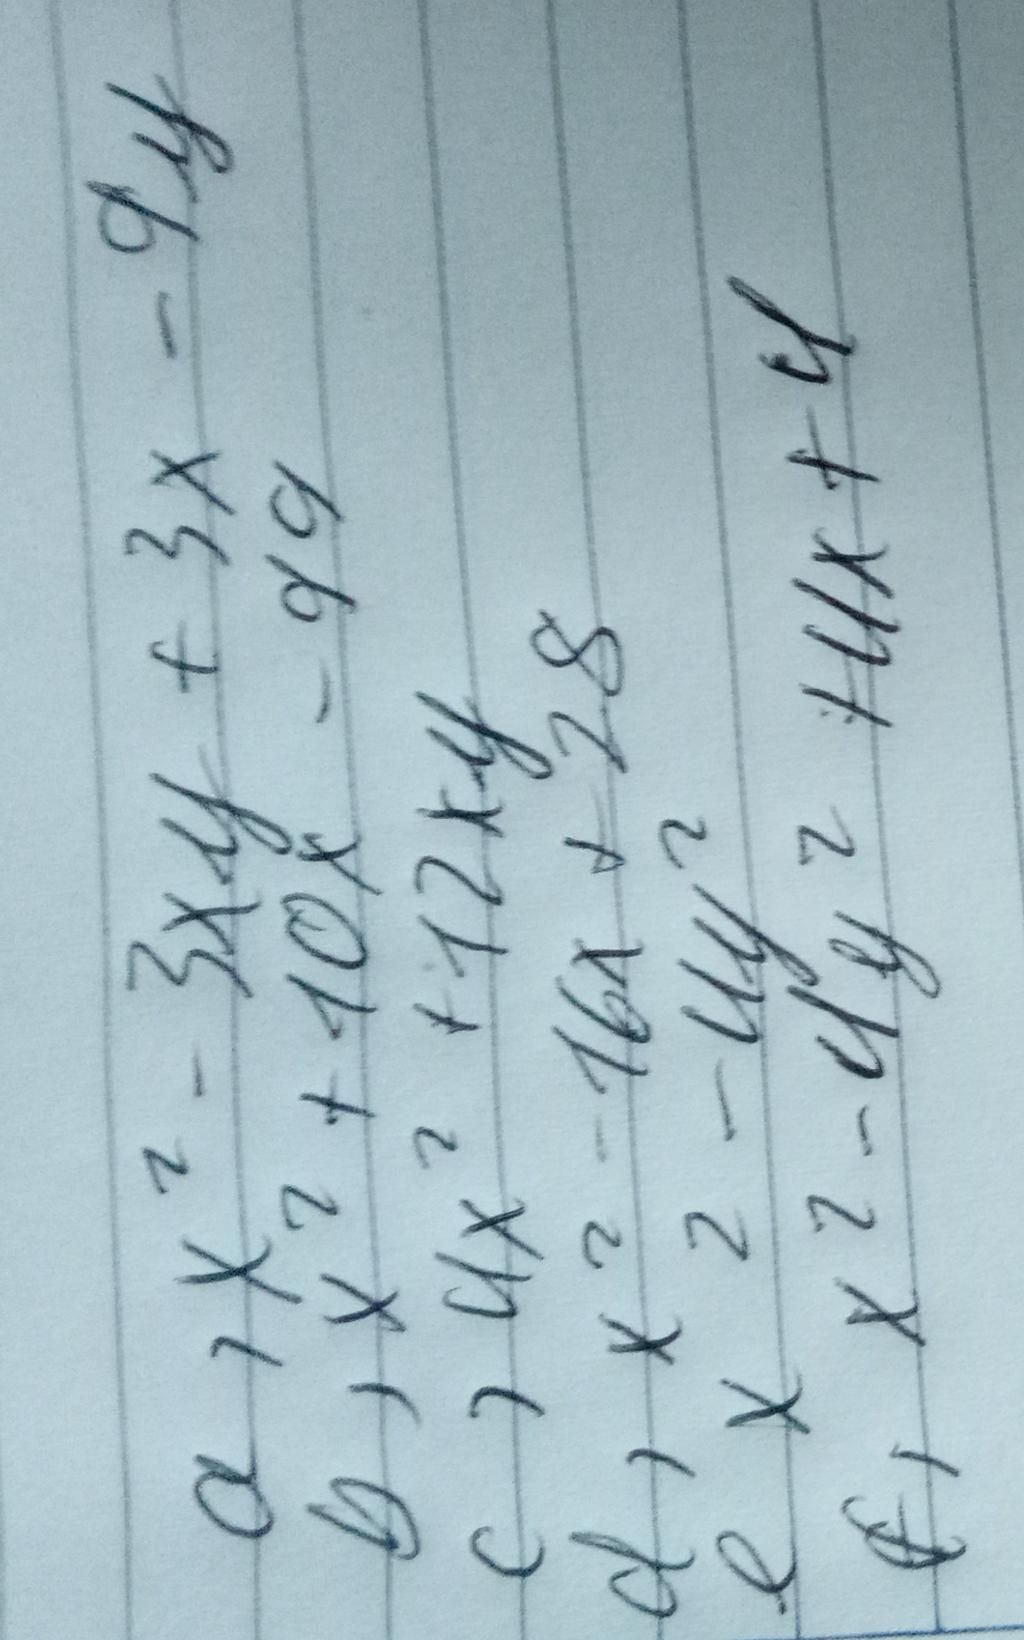 a, x² - 3xy + 3x - 9y
b, x² + 10x - 99
c, 4x² + 12xy
d, x² - 16x + 28
e x² - 4y²
f, x² - 4y² + 4x + 4